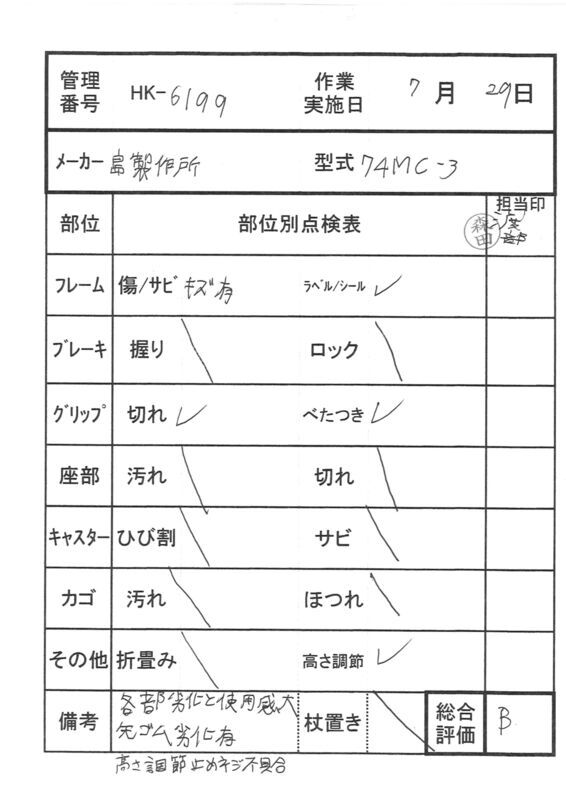 管理番号 HK-6199 作業実施日 7月 29日
メーカー 島製作所 型式 74MC-3
部位 部位別点検表 担当印
森田
フレーム 傷/サビ キズ有 ラベル/シール ✓
ブレーキ 握り \ ロック \
グリップ 切れ ✓ べたつき ✓
座部 汚れ \ 切れ \
キャスター ひび割 \ サビ \
カゴ 汚れ \ ほつれ \
その他 折畳み \ 高さ調節 ✓
備考 各部劣化と使用感大 杖置き \ 総合評価 B
先ゴム劣化有
高さ調節止めネジ不具合